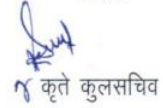 कृते कुलसचिव